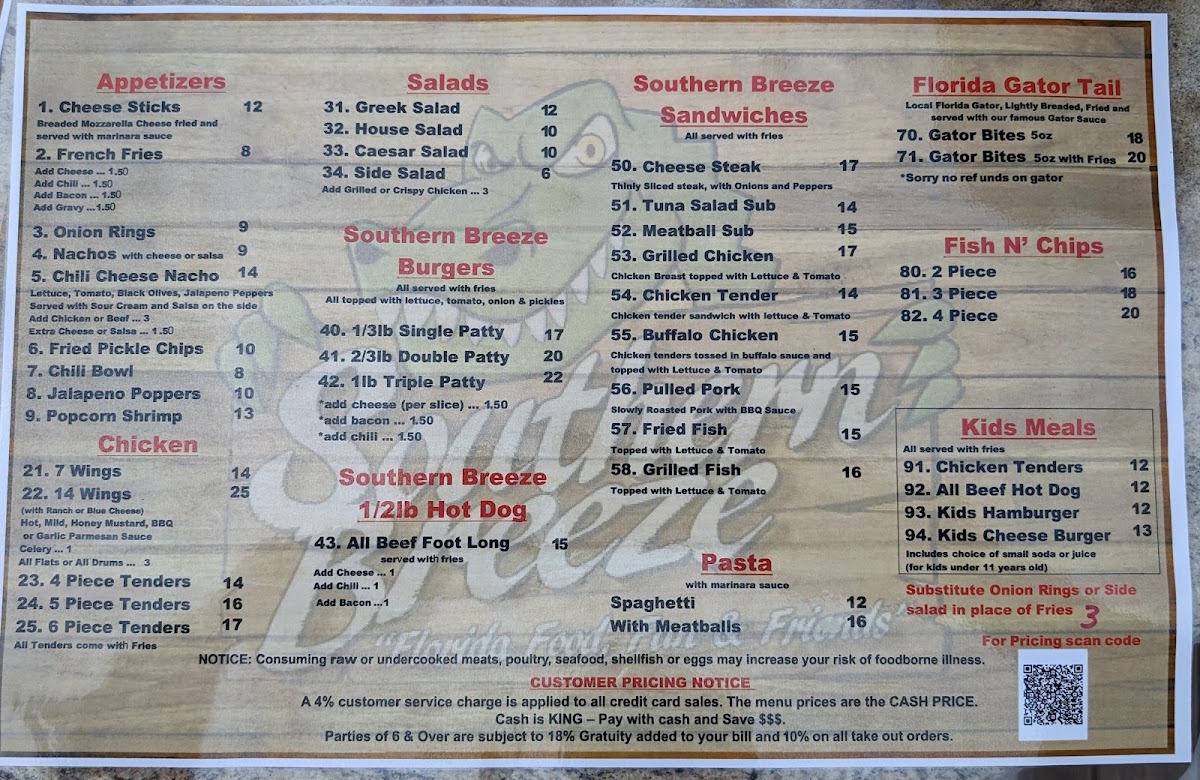 Appetizers
1. Cheese Sticks 12
Breaded Mozzarella Cheese fried and
served with marinara sauce
2. French Fries 8
Add Cheese ... 1.50
Add Chili ... 1.50
Add Bacon ... 1.50
Add Gravy ...1.50
3. Onion Rings 9
4. Nachos with cheese or salsa 9
5. Chili Cheese Nacho 14
Lettuce, Tomato, Black Olives, Jalapeno Peppers
Served with Sour Cream and Salsa on the side
Add Chicken or Beef ... 3
Extra Cheese or Salsa ... 1.50
6. Fried Pickle Chips 10
7. Chili Bowl 8
8. Jalapeno Poppers 10
9. Popcorn Shrimp 13
Chicken
21. 7 Wings 14
22. 14 Wings 25
(with Ranch or Blue Cheese)
Hot, Mild, Honey Mustard, BBQ
or Garlic Parmesan Sauce
Celery ... 1
All Flats or All Drums ... 3
23. 4 Piece Tenders 14
24. 5 Piece Tenders 16
25. 6 Piece Tenders 17
All Tenders come with Fries
Salads
31. Greek Salad 12
32. House Salad 10
33. Caesar Salad 10
34. Side Salad 6
Add Grilled or Crispy Chicken ... 3
Southern Breeze
Burgers
All served with fries
All topped with lettuce, tomato, onion & pickles
40. 1/3lb Single Patty 17
41. 2/3lb Double Patty 20
42. 1lb Triple Patty 22
*add cheese (per slice) ... 1.50
*add bacon ... 1.50
*add chili ... 1.50
Southern Breeze
1/2lb Hot Dog
43. All Beef Foot Long 15
served with fries
Add Cheese ... 1
Add Chili ... 1
Add Bacon ...1
Southern Breeze
Sandwiches
All served with fries
50. Cheese Steak 17
Thinly Sliced steak, with Onions and Peppers
51. Tuna Salad Sub 14
52. Meatball Sub 15
53. Grilled Chicken 17
Chicken Breast topped with Lettuce & Tomato
54. Chicken Tender 14
Chicken tender sandwich with lettuce & Tomato
55. Buffalo Chicken 15
Chicken tenders tossed in buffalo sauce and
topped with Lettuce & Tomato
56. Pulled Pork 15
Slowly Roasted Pork with BBQ Sauce
57. Fried Fish 15
Topped with Lettuce & Tomato
58. Grilled Fish 16
Topped with Lettuce & Tomato
Pasta
with marinara sauce
Spaghetti 12
With Meatballs 16
Florida Gator Tail
Local Florida Gator, Lightly Breaded, Fried and
served with our famous Gator Sauce
70. Gator Bites 5oz 18
71. Gator Bites 5oz with Fries 20
*Sorry no ref unds on gator
Fish N' Chips
80. 2 Piece 16
81. 3 Piece 18
82. 4 Piece 20
Kids Meals
All served with fries
91. Chicken Tenders 12
92. All Beef Hot Dog 12
93. Kids Hamburger 12
94. Kids Cheese Burger 13
Includes choice of small soda or juice
(for kids under 11 years old)
Substitute Onion Rings or Side
salad in place of Fries 3
For Pricing scan code
Southern
Breeze
"Florida Food, Fun & Friends"
NOTICE: Consuming raw or undercooked meats, poultry, seafood, shellfish or eggs may increase your risk of foodborne illness.
CUSTOMER PRICING NOTICE
A 4% customer service charge is applied to all credit card sales. The menu prices are the CASH PRICE.
Cash is KING – Pay with cash and Save $$$.
Parties of 6 & Over are subject to 18% Gratuity added to your bill and 10% on all take out orders.